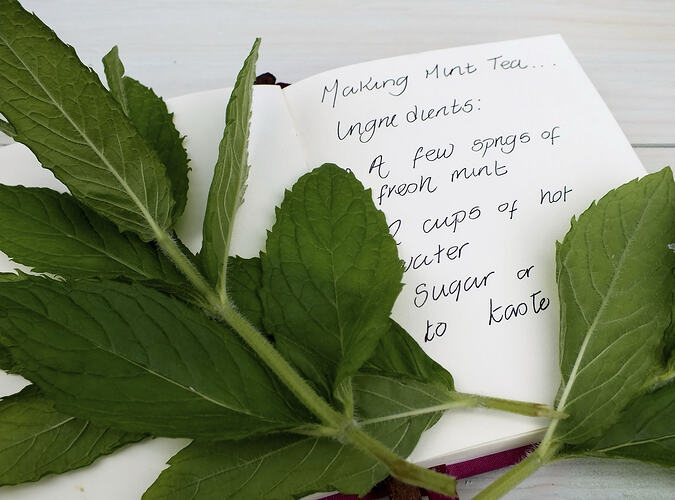 Making Mint Tea...
Ingredients:
A few sprigs of
fresh mint
cups of hot
water
Sugar or
to taste